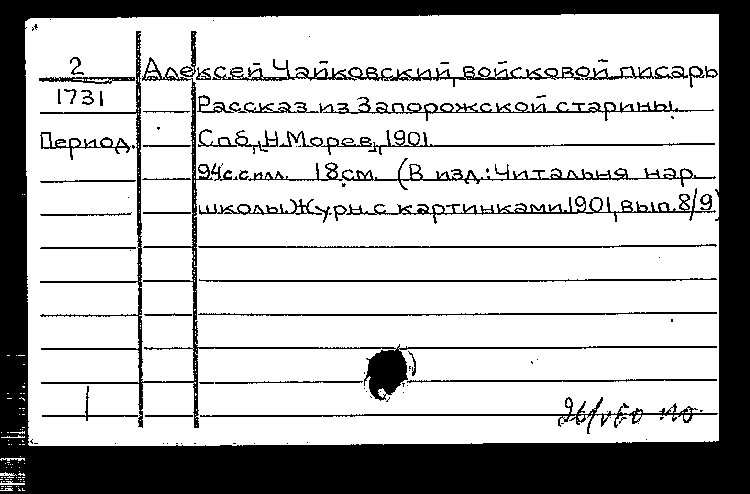 2 Алексей Чайковский, войсковой писарь
1731 Рассказ из Запорожской старины.
Период. Спб, „Н. Морев", 1901.
94 с. с илл. 18 см. (В изд.: Читальня нар.
школы. Журн. с картинками. 1901, вып. 8/9)
1